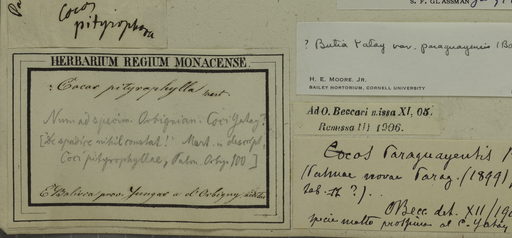 Cocos
pityrophora
HERBARIUM REGIUM MONACENSE.
? Cocos pityrophylla Mart.
Num ad specim. Orbignian. Coci Yatay?
[De spadice nihil constat! Mart. in descript.
Coci pityrophyllae, Palm. Orbign. 100.]
E Bolivia prov. Yungas a d'Orbigny
S. F. GLASSMAN
? Butia Yatay var. paraguayensis (Ba
H. E. MOORE, JR.
BAILEY HORTORIUM, CORNELL UNIVERSITY
Ad O. Beccari missa XI, 05.
Remissa III 1906.
Cocos Paraguayensis
(Palmae novae Parag. (1899),
tab. II ?)..
O Becc. det. XII/190
specie molto prossima al C. Yatay